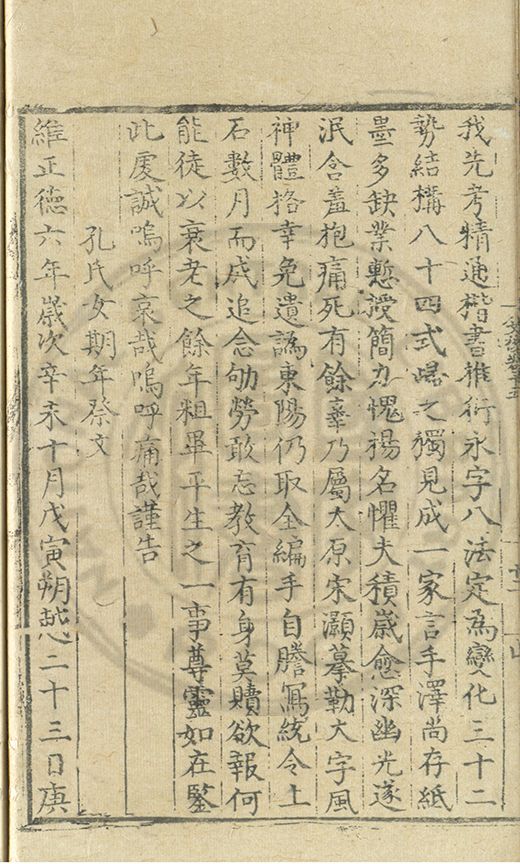 我先考精通楷書推衍永字八法定為變化三十二
勢結構八十四式歸之獨見成一家言手澤尚存紙
墨多缺業慙授簡力愧揚名懼夫積歲愈深幽光遂
泯含羞抱痛死有餘辜乃屬太原宋灝摹勒大字風
神體格幸免遺譌東陽仍取全編手自謄寫統令上
石數月而成追念劬勞敢忘教育有身莫贖欲報何
能徒以衰老之餘年粗畢平生之一事尊靈如在鑒
此虔誠嗚呼哀哉嗚呼痛哉謹告
孔氏女期年祭文
維正德六年歲次辛未十月戊寅朔越二十三日庚